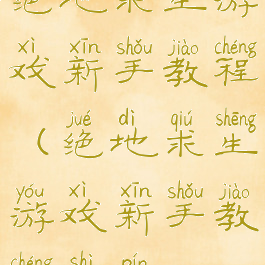 绝地求生游
xì xīn shǒu jiào chéng
戏新手教程
jué dì qiú shēng
(绝地求生
yóu xì xīn shǒu jiào
游戏新手教
chéng shì pín